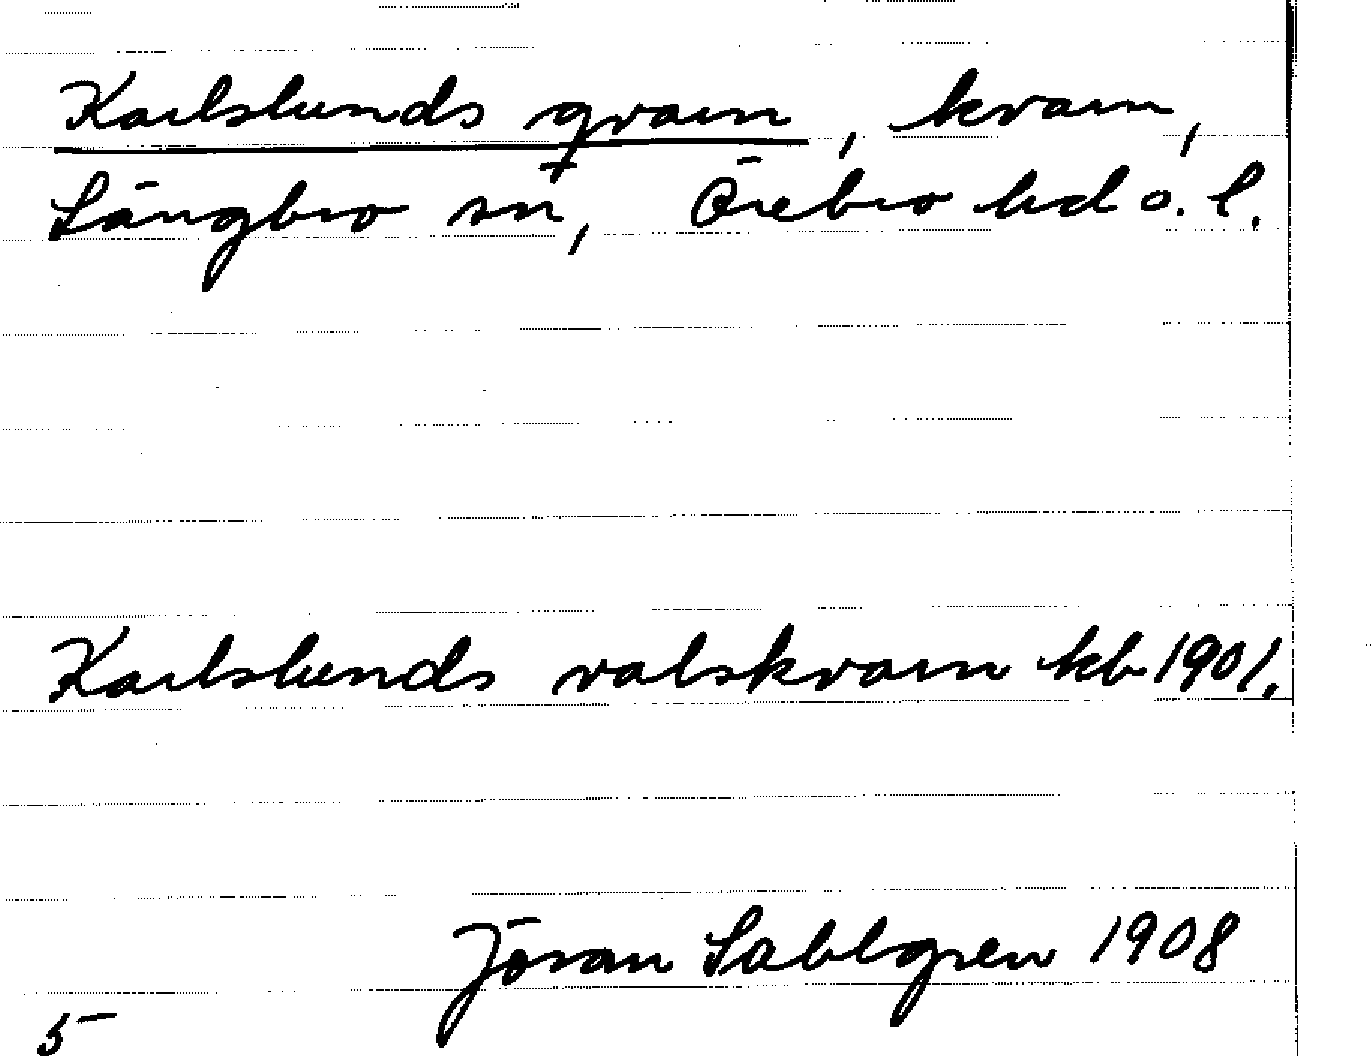 Karlslunds qvarn, kvarn,
Längbro sn, Örebro hd o. l.
Karlslunds valskvarn kb 1901.
Jöran Sahlgren 1908
5